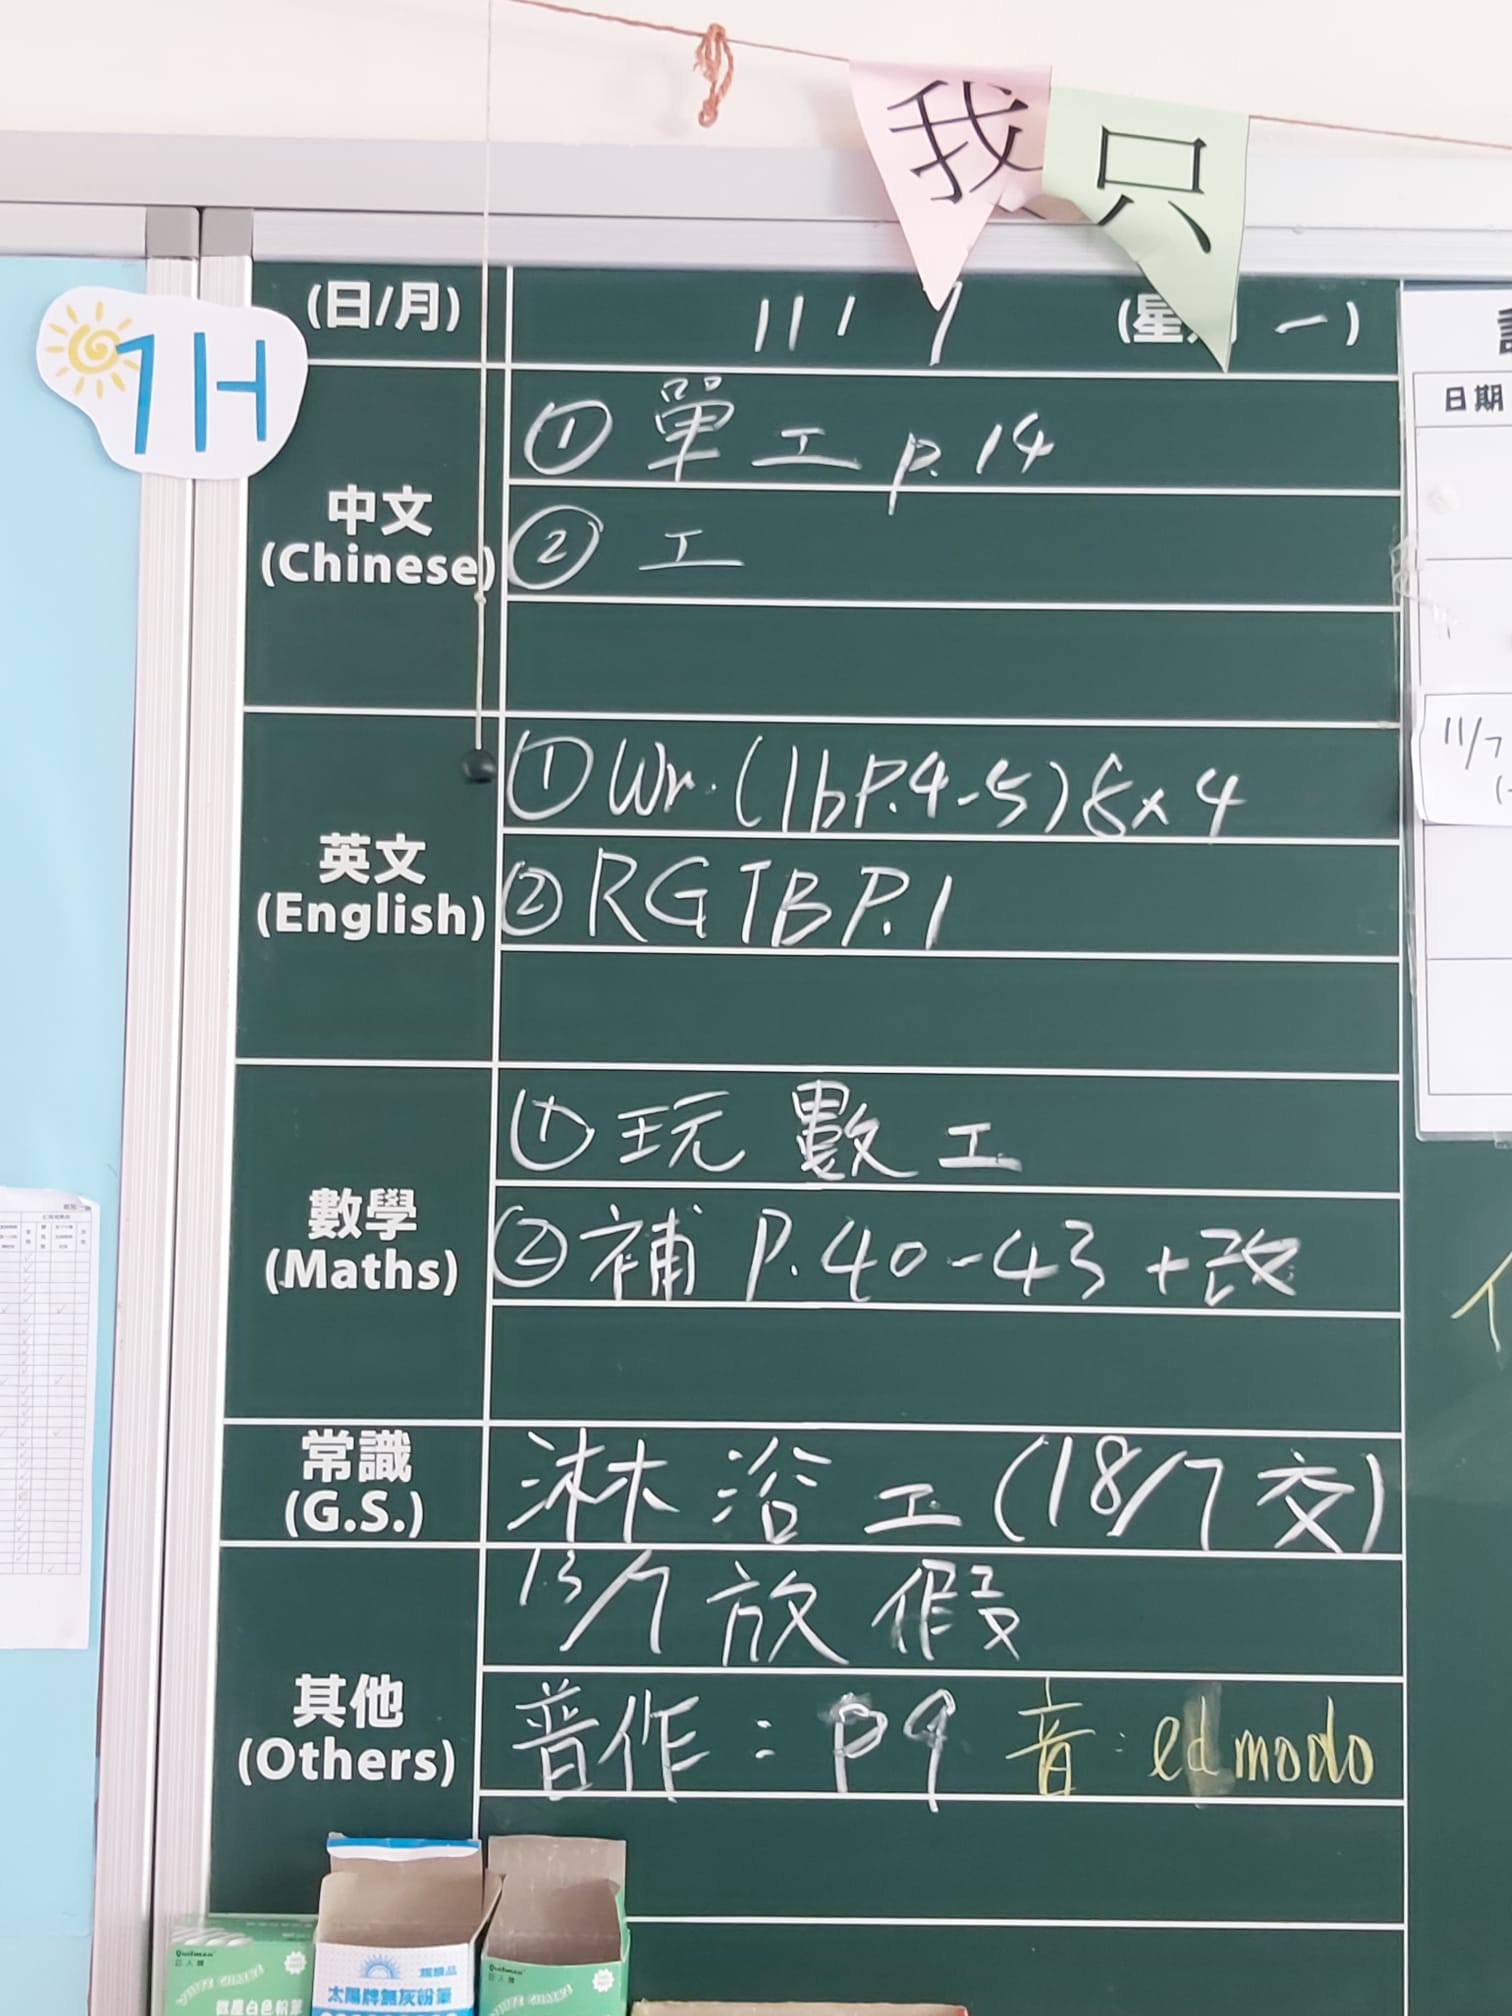 我只
1H
(日/月) 11 / 7 (星期 一)
中文
(Chinese)
① 單工 p.14
② 工
英文
(English)
① Wr. (1b P.4-5) 8x4
② RG TB P.1
數學
(Maths)
① 玩數工
② 補 P.40-43 + 改
常識
(G.S.)
淋浴工 (18/7 交)
其他
(Others)
13/7 放假
普作：p9 音：edmodo
日期
11/7
太陽牌無灰粉筆
微塵白色粉筆